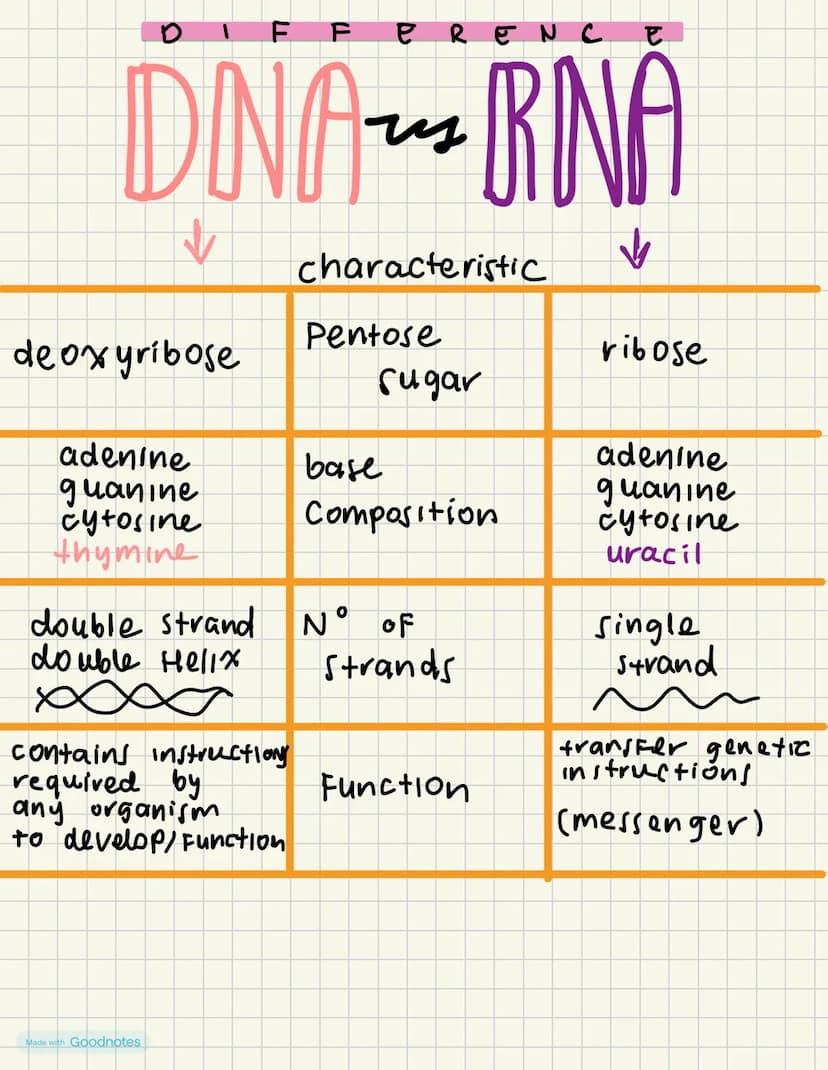 DIFFERENCE
DNA vs RNA
characteristic
deoxyribose
Pentose
sugar
ribose
adenine
guanine
cytosine
thymine
base
Composition
adenine
guanine
cytosine
uracil
double strand
double Helix
N° of
strands
single
strand
contains instructions
required by
any organism
to develop/Function
Function
transfer genetic
instructions
(messanger)
Made with Goodnotes